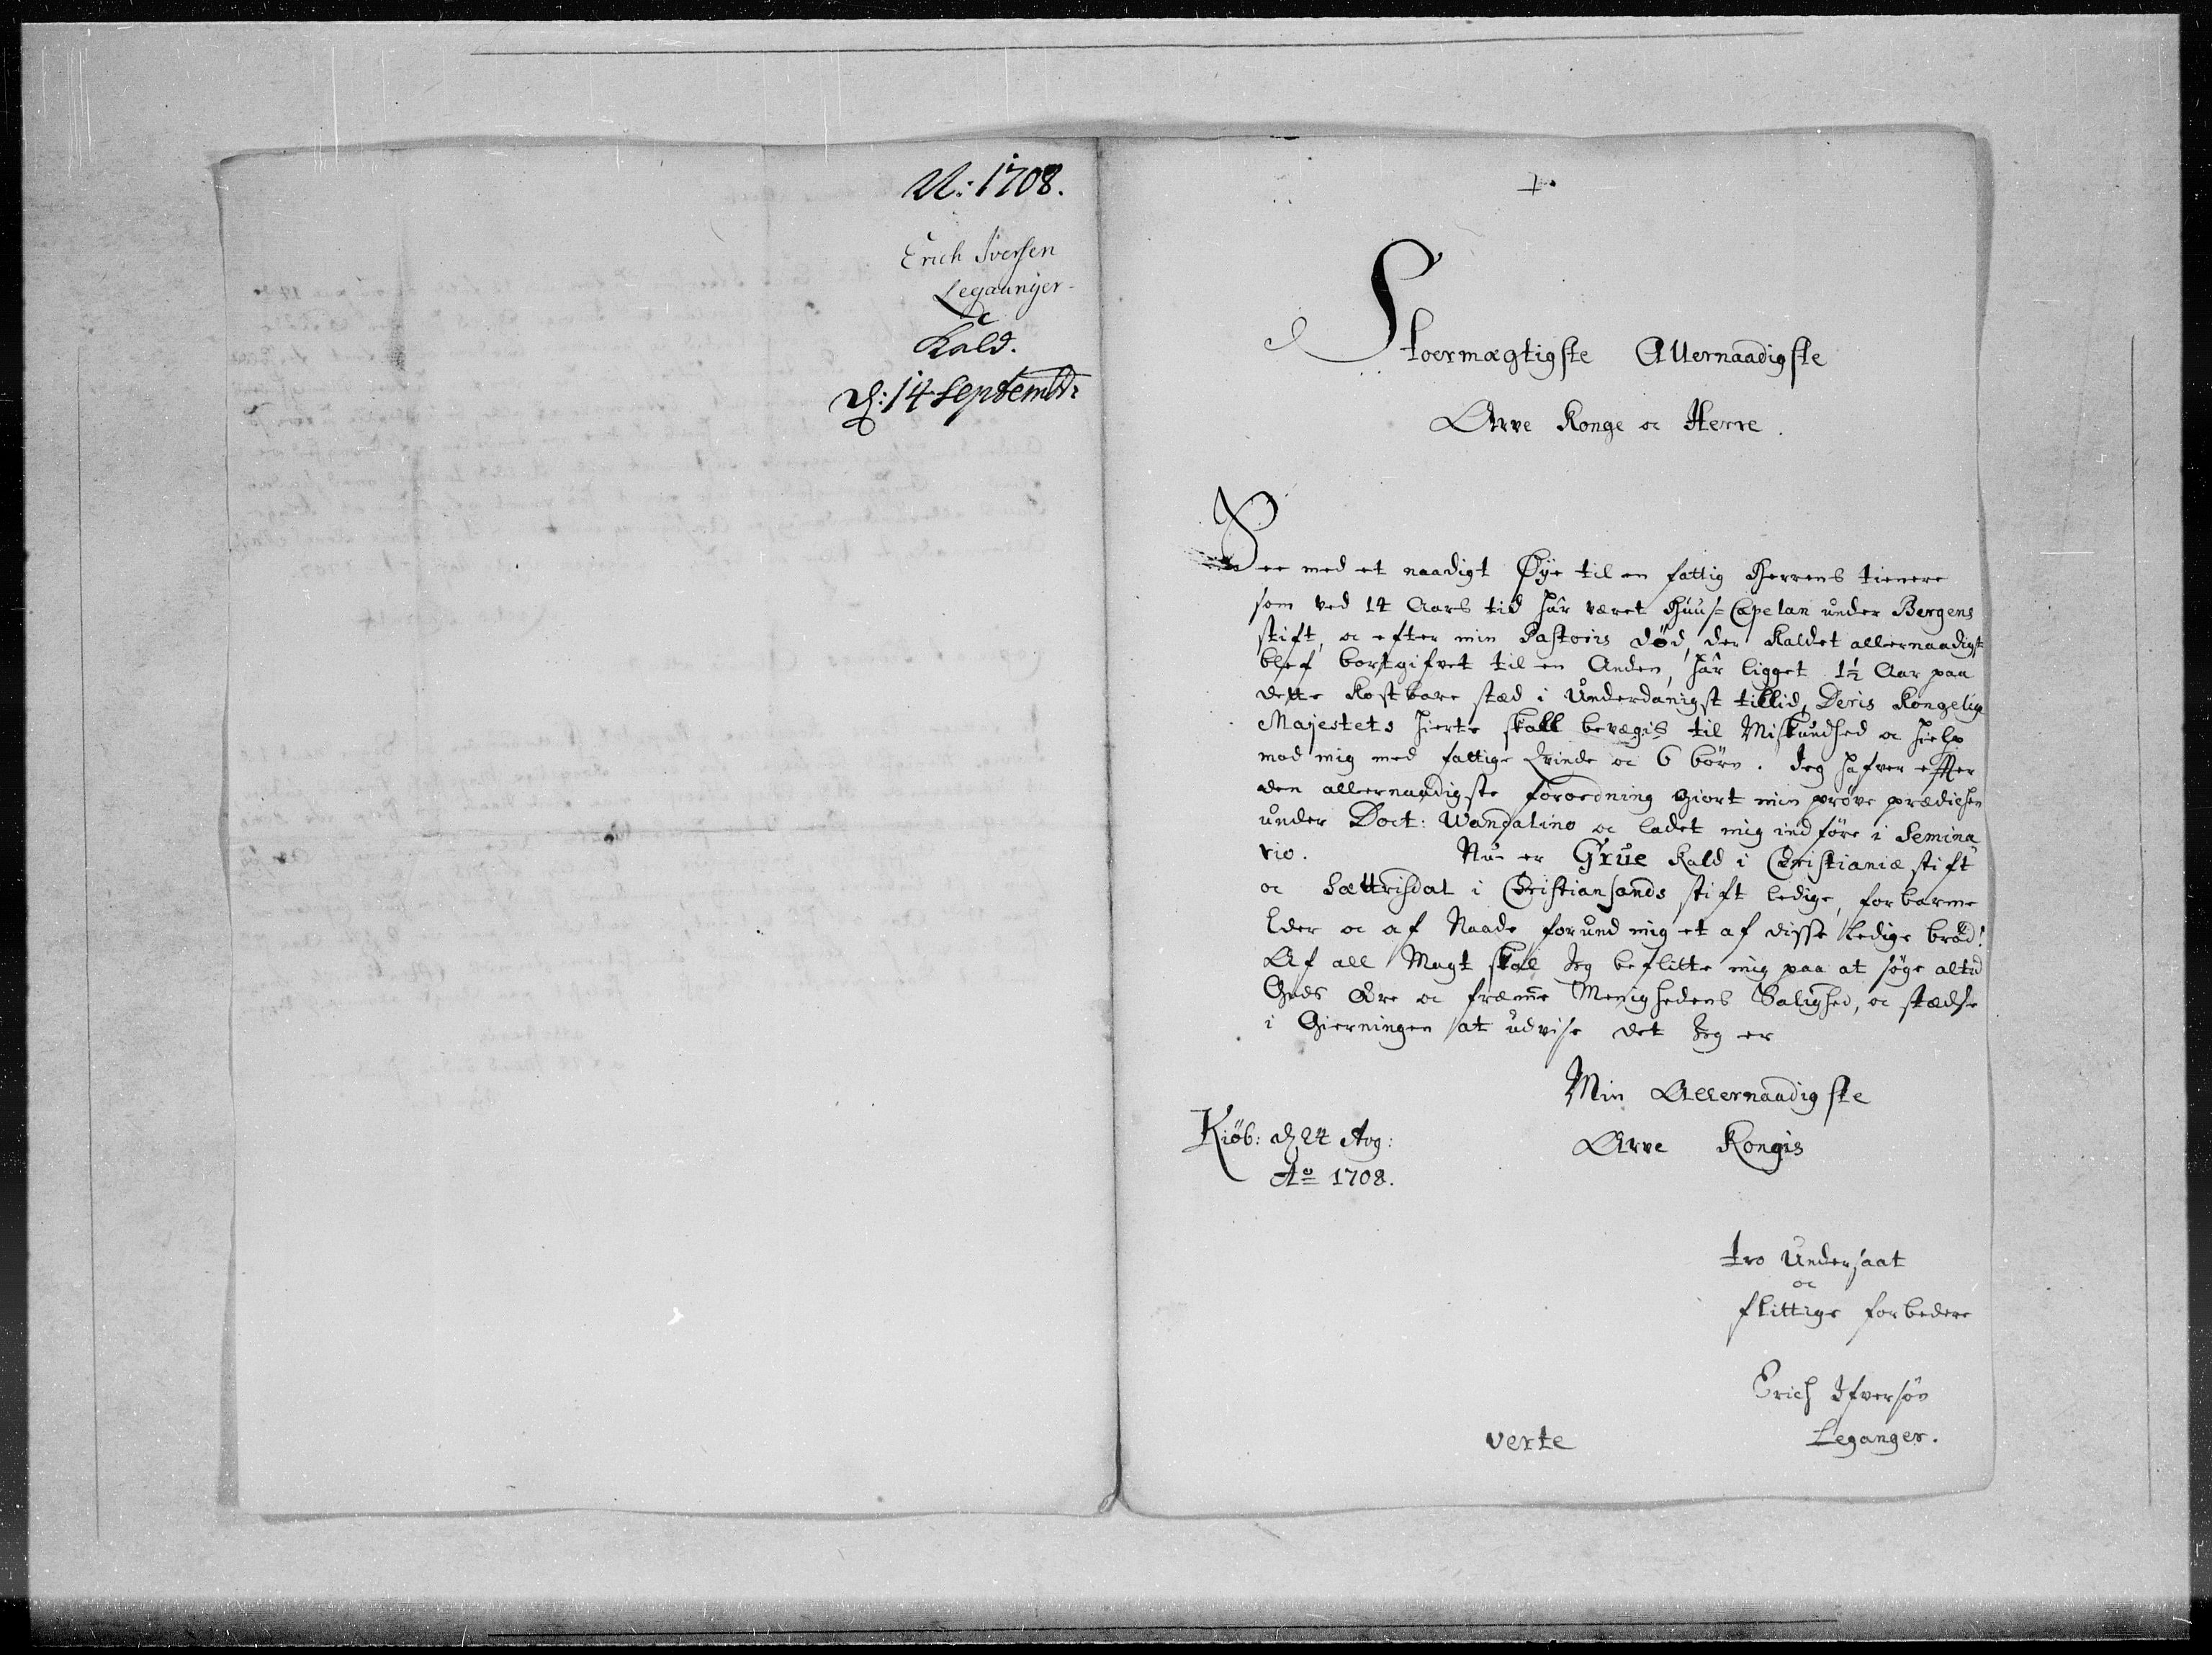 A: 1708.
Erich Iversen
Leganger
Kald.
d: 14 Septembr:
Stoermægtigste Allernaadigste
Arve Konge oc Herre.
See med et naadigt Øye til en fattig Herrens tienere
som ved 14 Aars tid hâr været Huus-Capelan under Bergens
stift, oc efter min Pastoris død, der Kaldet allernaadigst
blef bortgifvet til en Anden, hâr ligget 1½ Aar paa
dette Kostbare stæd i Underdanigst tillid, Deris Kongelige
Majestets hierte skall bevægis til Miskundhed oc hielp
mod mig med fattige Qvinde oc 6 börn. Jeg hafver effter
den allernaadigste forordning giort min pröve prædichen
under Doct: Wandalino oc ladet mig indföre i Semina
rio. Nu er Grue Kald i Christianiæ stift
oc Sættrisdal i Christiansands stift ledige, forbarme
Eder oc af Naade forund mig et af disse ledige bröd!
Af all Magt skal Jeg beflitte mig paa at söge altid
Guds Ære oc fræmme Menighedens Salighed, oc stædse
i Gierningen at udvise det Jeg er
Min Allernaadigste
Kiöb: d 24 Aug:
Arve Kongis
Ao 1708.
tro Undersaat
oc
flittige forbedere
Erich Ifversön
verte
Leganger.